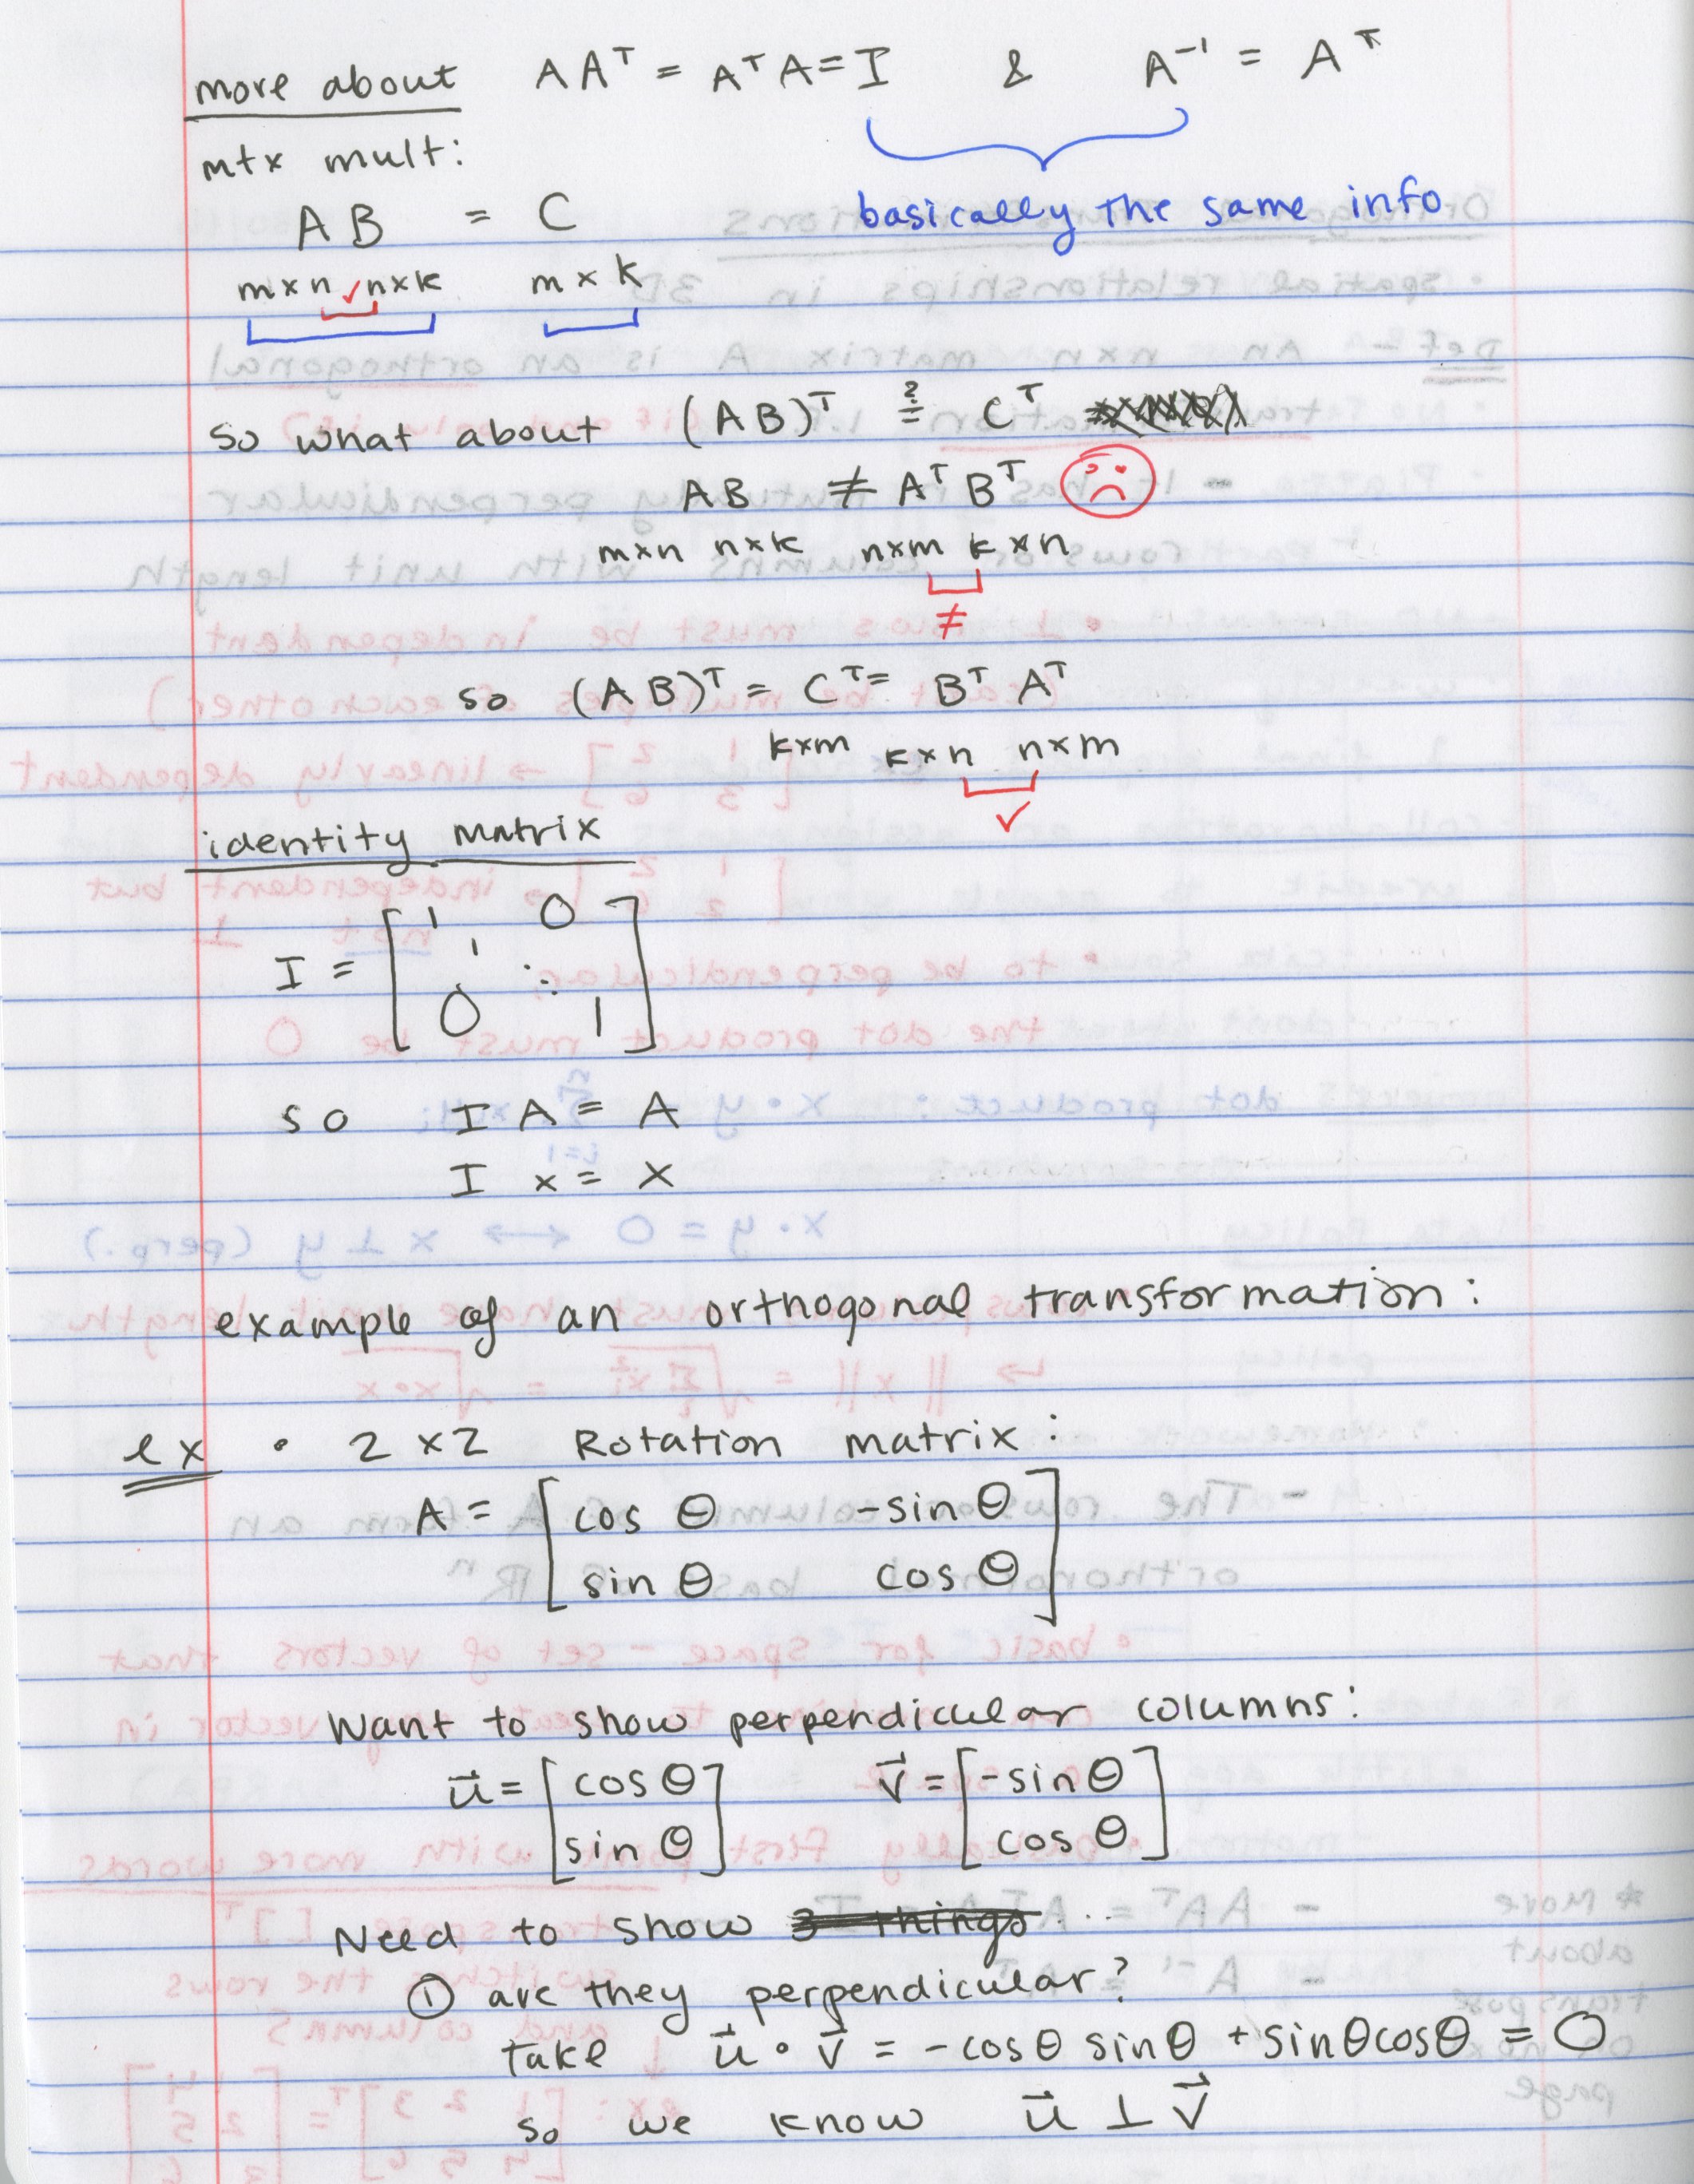 more about AAᵀ = AᵀA = I & A⁻¹ = Aᵀ
mtx mult:
basically the same info
AB = C
m×n ✓ n×k m×k
so what about (AB)ᵀ ≟ Cᵀ
AB ≠ AᵀBᵀ
m×n n×k n×m k×n
≠
so (AB)ᵀ = Cᵀ = Bᵀ Aᵀ
k×m k×n n×m
✓
identity matrix
I = [1 0
1 ⋱
0 1]
so IA = A
I x = x
example of an orthogonal transformation:
ex • 2×2 Rotation matrix:
A = [cos θ -sin θ
sin θ cos θ]
Want to show perpendicular columns:
u⃗ = [cos θ v⃗ = [-sin θ
sin θ] cos θ]
Need to show 3 things ...
① are they perpendicular?
take u⃗ • v⃗ = -cosθ sinθ + sinθcosθ = 0
so we know u⃗ ⊥ v⃗